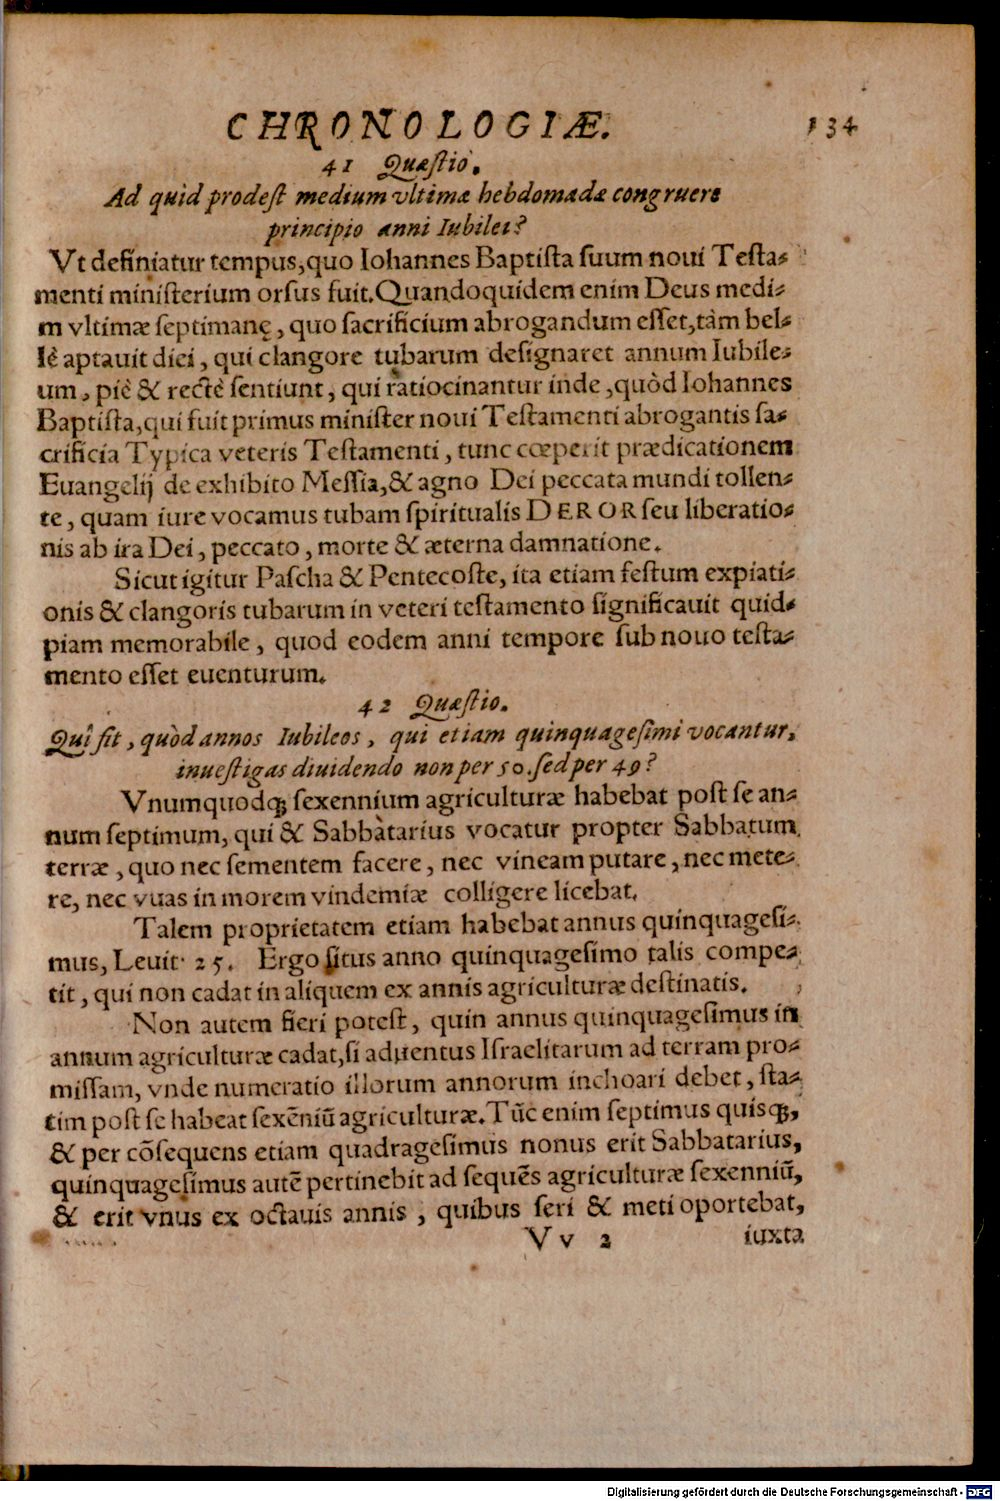 CHRONOLOGIÆ. 134
41 Quæſtio.
Ad quid prodeſt medium vltimæ hebdomadæ congruere
principio anni Iubilei?
Vt definiatur tempus, quo Iohannes Baptiſta ſuum noui Teſta-
menti miniſterium orſus fuit. Quandoquidem enim Deus medi-
m vltimæ ſeptimanę, quo ſacrificium abrogandum eſſet, tàm bel-
lè aptauit diei, qui clangore tubarum deſignaret annum Iubile-
um, piè & rectè ſentiunt, qui ratiocinantur inde, quòd Iohannes
Baptiſta, qui fuit primus miniſter noui Teſtamenti abrogantis ſa-
crificia Typica veteris Teſtamenti, tunc cœperit prædicationem
Euangelij de exhibito Meſſia, & agno Dei peccata mundi tollen-
te, quam iure vocamus tubam ſpiritualis DEROR ſeu liberatio-
nis ab ira Dei, peccato, morte & æterna damnatione.
Sicut igitur Paſcha & Pentecoſte, ita etiam feſtum expiati-
onis & clangoris tubarum in veteri teſtamento ſignificauit quid-
piam memorabile, quod eodem anni tempore ſub nouo teſta-
mento eſſet euenturum.
42 Quæſtio.
Quî fit, quòd annos Iubileos, qui etiam quinquageſimi vocantur,
inueſtigas diuidendo non per 50. ſed per 49?
Vnumquodqꝫ ſexennium agriculturæ habebat poſt ſe an-
num ſeptimum, qui & Sabbàtarius vocatur propter Sabbatum
terræ, quo nec ſementem facere, nec vineam putare, nec mete-
re, nec vuas in morem vindemiæ colligere licebat.
Talem proprietatem etiam habebat annus quinquageſi-
mus, Leuit. 25. Ergo ſitus anno quinquageſimo talis compe-
tit, qui non cadat in aliquem ex annis agriculturæ deſtinatis.
Non autem fieri poteſt, quin annus quinquageſimus in
annum agriculturæ cadat, ſi aduentus Iſraelitarum ad terram pro-
miſſam, vnde numeratio illorum annorum inchoari debet, ſta-
tim poſt ſe habeat ſexẽniũ agriculturæ. Tũc enim ſeptimus quiſqꝫ,
& per cõſequens etiam quadrageſimus nonus erit Sabbatarius,
quinquageſimus autẽ pertinebit ad ſequẽs agriculturæ ſexenniũ,
& erit vnus ex octauis annis, quibus ſeri & meti oportebat,
Vv 2 iuxta
Digitalisierung gefördert durch die Deutsche Forschungsgemeinschaft - DFG